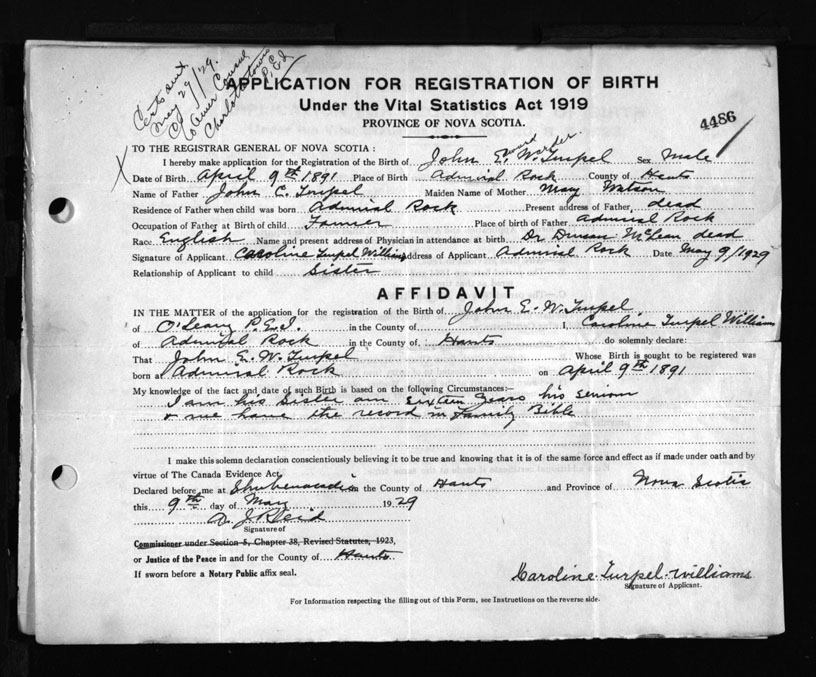 Cert. sent
May 27/29.
to Amer Consul
Charlottetown
P.E.I.
APPLICATION FOR REGISTRATION OF BIRTH
Under the Vital Statistics Act 1919
PROVINCE OF NOVA SCOTIA.
4486
TO THE REGISTRAR GENERAL OF NOVA SCOTIA :
I hereby make application for the Registration of the Birth of John Edward Warder Turpel Sex Male
Date of Birth April 9th 1891 Place of Birth Admiral Rock County of Hants
Name of Father John C. Turpel Maiden Name of Mother May Watson
Residence of Father when child was born Admiral Rock Present address of Father dead
Occupation of Father at Birth of child Farmer Place of birth of Father Admiral Rock
Race English Name and present address of Physician in attendance at birth Dr Duncan McLean dead
Signature of Applicant Caroline Turpel Williams Address of Applicant Admiral Rock Date May 9/1929
Relationship of Applicant to child Sister
AFFIDAVIT
IN THE MATTER of the application for the registration of the Birth of John E. W. Turpel
of O'Leary P.E.I. in the County of I, Caroline Turpel Williams
of Admiral Rock in the County of Hants do solemnly declare:
That John E. W. Turpel Whose Birth is sought to be registered was
born at Admiral Rock on April 9th 1891
My knowledge of the fact and date of such Birth is based on the following Circumstances:—
I am his Sister am sixteen years his senior
& we have the record in family Bible
I make this solemn declaration conscientiously believing it to be true and knowing that it is of the same force and effect as if made under oath and by
virtue of The Canada Evidence Act.
Declared before me at Shubenacadie in the County of Hants and Province of Nova Scotia
this 9th day of May 1929
A. J. Reid
Signature of
Commissioner under Section 5, Chapter 38, Revised Statutes, 1923,
or Justice of the Peace in and for the County of Hants
If sworn before a Notary Public affix seal.
Caroline Turpel-Williams
Signature of Applicant.
For Information respecting the filling out of this Form, see Instructions on the reverse side.